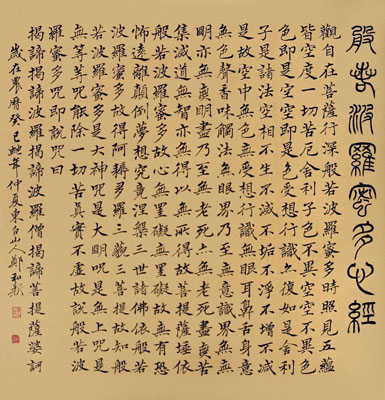 般若波羅蜜多心經
觀自在菩薩行深般若波羅蜜多時照見五蘊
皆空度一切苦厄舍利子色不異空空不異
色即是空空即是色受想行識亦復如是舍利
子是諸法空相不生不滅不垢不淨不增不減
是故空中無色無受想行識無眼耳鼻舌身意
無色聲香味觸法無眼界乃至無意識界無無
明亦無無明盡乃至無老死亦無老死盡無苦
集滅道無智亦無得以無所得故菩提薩埵依
般若波羅蜜多故心無罣礙無罣礙故無有恐
怖遠離顛倒夢想究竟涅槃三世諸佛依般若
波羅蜜多故得阿耨多羅三藐三菩提故知般
若波羅蜜多是大神咒是大明咒是無上咒是
無等等咒能除一切苦真實不虛故說般若波
羅蜜多咒即說咒曰
揭諦揭諦波羅揭諦波羅僧揭諦菩提薩婆訶
歲在農曆癸巳蛇年仲夏東白山人鄭和新